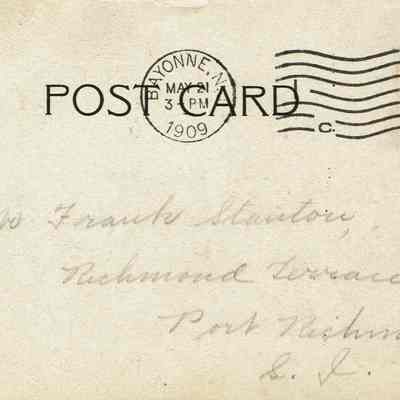 POST CARD
BAYONNE, N.
MAY 21
3-PM
1909
C.
Frank Stanton,
Richmond Terrac
Port Richm
S. I.